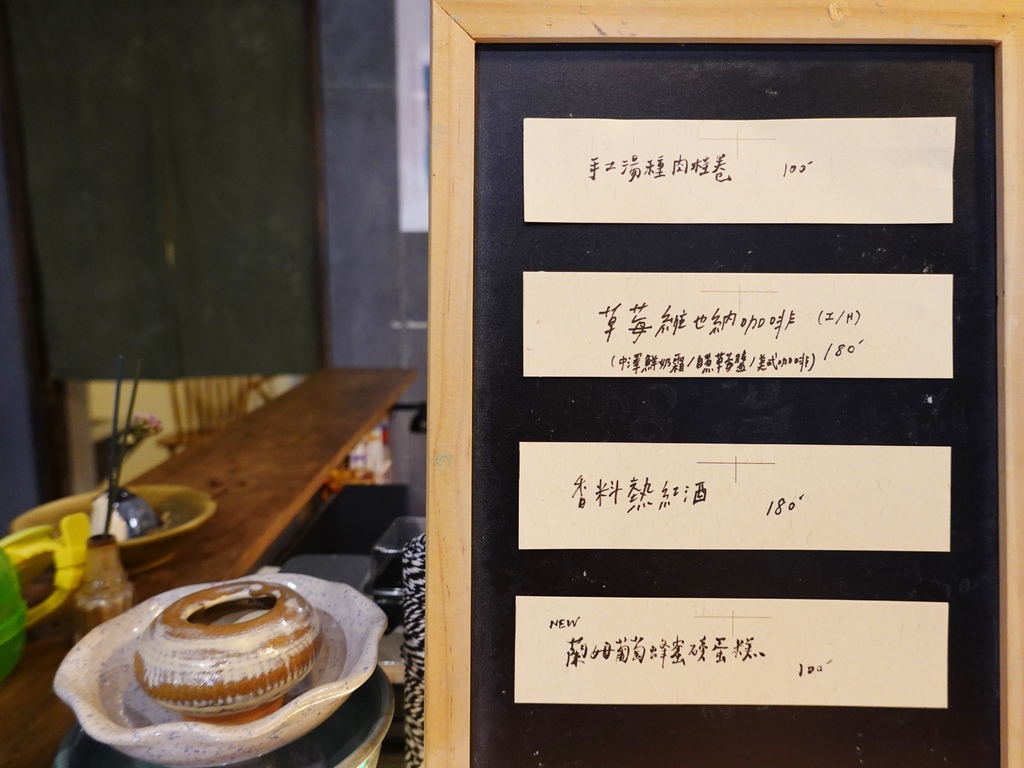 手工湯種肉桂卷 100
草莓維也納咖啡 (I/H)
(中澤鮮奶霜/自熬草莓醬/美式咖啡) 180
香料熱紅酒 180
NEW
蘭姆葡萄蜂蜜磅蛋糕 100